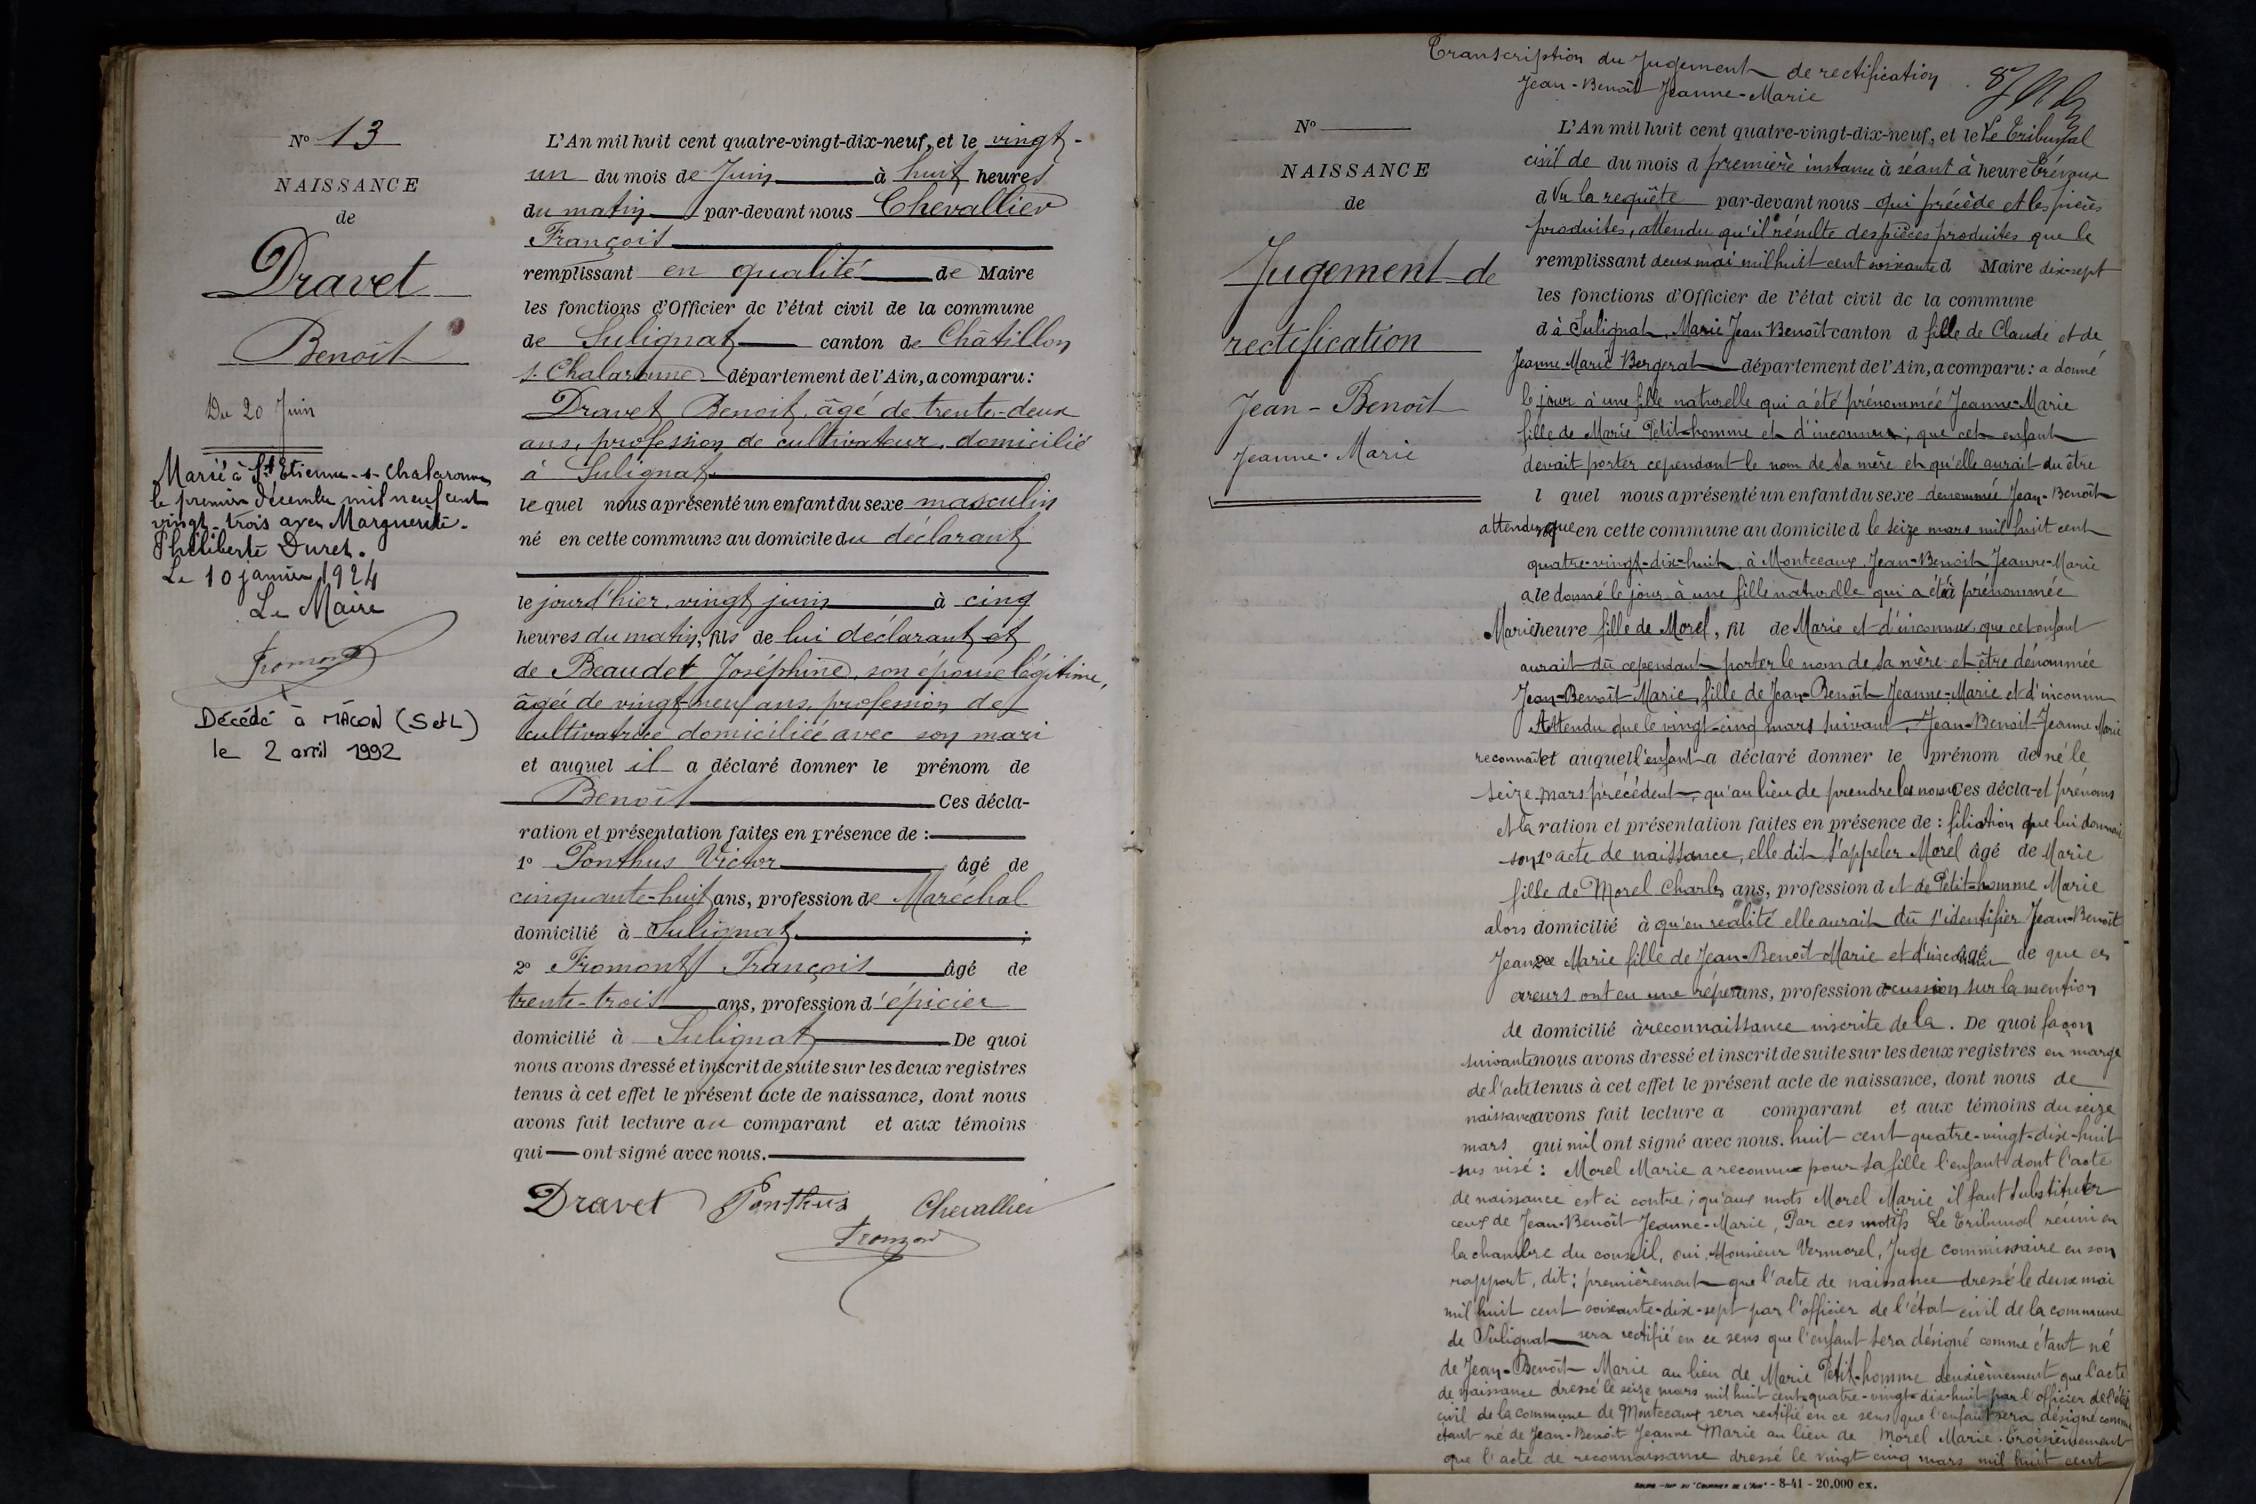 N° 13
NAISSANCE
de
Dravet
Benoît
Du 20 Juin
Marié à St Etienne-s-Chalaronne
le premier décembre mil neuf cent
vingt-trois avec Marguerite-
Philiberte Duret.
Le 10 janvier 1924
Le Maire
Fromont
Décédé à MÂCON (S et L)
le 2 avril 1992
L'An mil huit cent quatre-vingt-dix-neuf, et le vingt-
un du mois de Juin à huit heures
du matin par-devant nous Chevallier
François
remplissant en qualité de Maire
les fonctions d'Officier de l'état civil de la commune
de Sulignat canton de Châtillon
s. Chalaronne département de l'Ain, a comparu:
Dravet Benoit, âgé de trente-deux
ans, profession de cultivateur, domicilié
à Sulignat
le quel nous a présenté un enfant du sexe masculin
né en cette commune au domicile du déclarant
le jourd'hier, vingt juin à cinq
heures du matin, fils de lui déclarant et
de Beaudet Joséphine, son épouse légitime,
âgée de vingt-neuf ans, profession de
cultivatrice domiciliée avec son mari
et auquel il a déclaré donner le prénom de
Benoît Ces décla-
ration et présentation faites en présence de :
1° Ponthus Victor âgé de
cinquante-huit ans, profession de Maréchal
domicilié à Sulignat ;
2° Fromont François âgé de
trente-trois ans, profession d'épicier
domicilié à Sulignat De quoi
nous avons dressé et inscrit de suite sur les deux registres
tenus à cet effet le présent acte de naissance, dont nous
avons fait lecture au comparant et aux témoins
qui ont signé avec nous.
Dravet Ponthus Chevallier
Fromont
Transcription du Jugement de rectification
Jean-Benoît Jeanne-Marie
N°
NAISSANCE
de
Jugement de
rectification
Jean-Benoît
Jeanne-Marie
L'An mil huit cent quatre-vingt-dix-neuf, et le Le Tribunal
civil de du mois d première instance à séant à heure Trévoux
d Vu la requête par-devant nous qui précède et les pièces
produites, attendu qu'il résulte des pièces produites que le
remplissant deux mai mil huit cent soixante d Maire dix-sept
les fonctions d'Officier de l'état civil de la commune
d à Sulignat, Marie Jean Benoît canton d fille de Claude et de
Jeanne Marie Bergerat département de l'Ain, a comparu: a donné
le jour à une fille naturelle qui a été prénommée Jeanne-Marie
fille de Marie Petit-homme et d'inconnu; que cet enfant
devait porter cependant le nom de sa mère et qu'elle aurait du être
l quel nous a présenté un enfant du sexe denommée Jean-Benoît
attendu que en cette commune au domicile d le seize mars mil huit cent
quatre-vingt-dix-huit, à Montceaux Jean-Benoit Jeanne-Marie
a le donné le jour à une fille naturelle qui a été à prénommée
Marie heure fille de Morel, fil de Marie et d'inconnu, que cet enfant
aurait dû cependant porter le nom de sa mère et être dénommée
Jean-Benoît Marie, fille de Jean-Benoît Jeanne-Marie et d'inconnu
Attendu que le vingt-cinq mars suivant, Jean-Benoit Jeanne Marie
reconnaît et auquel l'enfant a déclaré donner le prénom de né le
seize mars précédent, qu'au lieu de prendre les noms Ces décla- et prénoms
et la ration et présentation faites en présence de : filiation que lui donnai
son 1° acte de naissance, elle dit s'appeler Morel âgé de Marie
fille de Morel Charles ans, profession d et de Petit-homme Marie
alors domicilié à qu'en réalité elle aurait dû s'identifier Jean-Benoît
Jeanne 2° Marie fille de Jean-Benoît Marie et d'inconnu âgé de que ces
erreurs ont eu une réper ans, profession d cussion sur la mention
de domicilié à reconnaissance inscrite de la . De quoi façon
suivante nous avons dressé et inscrit de suite sur les deux registres en marge
de l'acte tenus à cet effet le présent acte de naissance, dont nous de
naissance avons fait lecture a comparant et aux témoins du seize
mars qui mil ont signé avec nous. huit cent quatre-vingt-dix-huit
sus visé: Morel Marie a reconnu pour sa fille l'enfant dont l'acte
de naissance est ci contre; qu'aux mots Morel Marie il faut substituer
ceux de Jean-Benoît Jeanne-Marie, Par ces motifs Le Tribunal réuni en
la chambre du conseil, oui Monsieur Vermorel, Juge commissaire en son
rapport, dit: premièrement que l'acte de naissance dressé le deux mai
mil huit cent soixante-dix-sept par l'officier de l'état civil de la commune
de Sulignat sera rectifié en ce sens que l'enfant sera désigné comme étant né
de Jean-Benoît Marie au lieu de Marie Petit-homme deuxièmement que l'acte
de naissance dressé le seize mars mil huit cent quatre-vingt-dix-huit par l'officier de l'état
civil de la commune de Montceaux sera rectifié en ce sens que l'enfant sera désigné comme
étant né de Jean-Benoît Jeanne Marie au lieu de Morel Marie. Troisièmement
que l'acte de reconnaissance dressé le vingt cinq mars mil huit cent
BOURG - IMP DU "COURRIER DE L'AIN" - 8-41 - 20.000 ex.